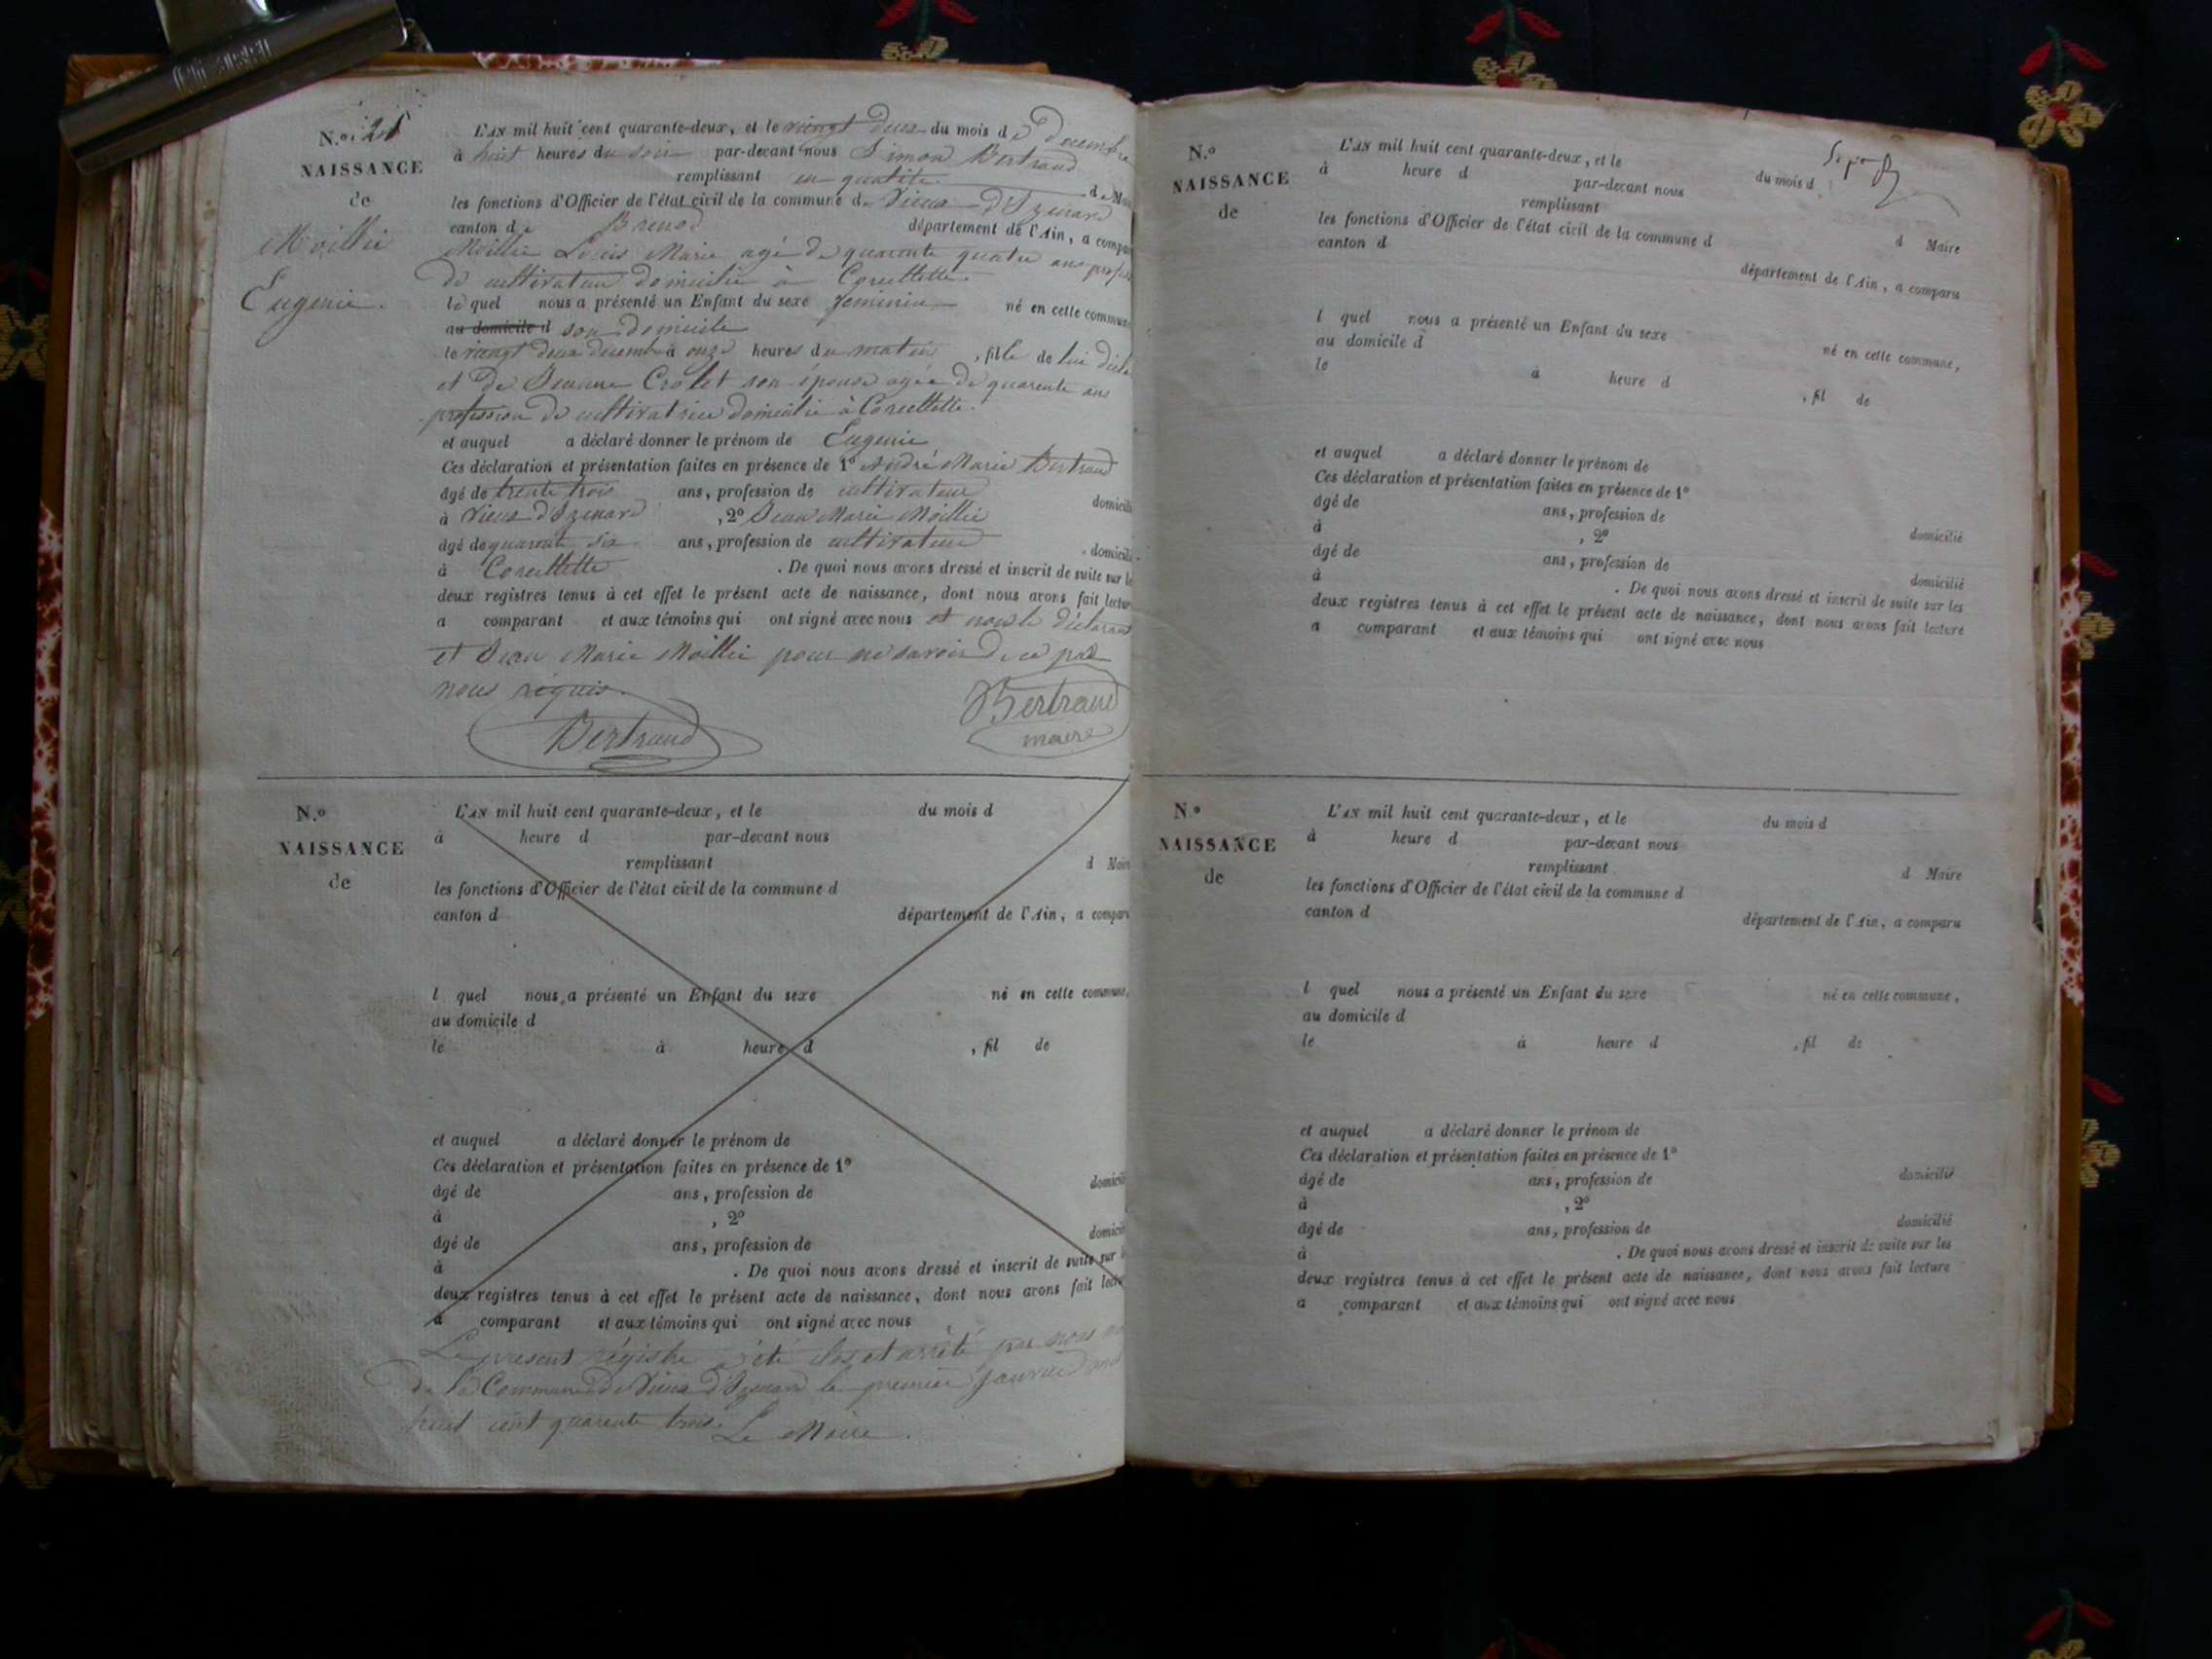 N.º 21
NAISSANCE
de
Moillie
Eugenie.
L'AN mil huit cent quarante-deux, et le vingt deux du mois de Decembre
à huit heures du soir par-devant nous Simon Bertrand
remplissant en qualité de Mai
les fonctions d'Officier de l'état civil de la commune de Vieux d'Izenard
canton de Brenod département de l'Ain, a compar
Moillie Louis Marie agé de quarente quatre ans profes
de cultivateur domicilié à Corcellette.
le quel nous a présenté un Enfant du sexe feminin né en cette commune
au domicile d son domicile
le vingt deux decembre à onze heures du matin, fille de lui décla
et de Jeanne Crolet son épouse agée de quarente ans
profession de cultivatrice domicilié à Corcellette.
et auquel a déclaré donner le prénom de Eugenie
Ces déclaration et présentation faites en présence de 1º André Marie Bertrand
âgé de trente trois ans, profession de cultivateur domicili
à Vieux d'Izenard, 2º Jean Marie Moillie
âgé de quarente six ans, profession de cultivateur, domicili
à Corcellette. De quoi nous avons dressé et inscrit de suite sur le
deux registres tenus à cet effet le présent acte de naissance, dont nous avons fait lectur
a comparant et aux témoins qui ont signé avec nous et non le déclarant
et Jean Marie Moillie pour ne savoir de ce par
nous réquis.
Bertrand
Bertrand
maire
N.º
NAISSANCE
de
L'AN mil huit cent quarante-deux, et le du mois d
à heure d par-devant nous
remplissant d Maire
les fonctions d'Officier de l'état civil de la commune d
canton d département de l'Ain, a compar
l quel nous a présenté un Enfant du sexe né en cette commune,
au domicile d
le à heure d , fil de
et auquel a déclaré donner le prénom de
Ces déclaration et présentation faites en présence de 1º
âgé de ans, profession de domicili
à , 2º
âgé de ans, profession de domicili
à . De quoi nous avons dressé et inscrit de suite sur l
deux registres tenus à cet effet le présent acte de naissance, dont nous avons fait lectu
a comparant et aux témoins qui ont signé avec nous
Le present régistre a été clos et arrêté par nous
de la Commune de Vieux d'Izenard le premier janvier mil
huit cent quarente trois. Le Maire.
N.º
NAISSANCE
de
L'AN mil huit cent quarante-deux, et le du mois d
à heure d par-devant nous
remplissant d Maire
les fonctions d'Officier de l'état civil de la commune d
canton d département de l'Ain, a comparu
l quel nous a présenté un Enfant du sexe né en cette commune,
au domicile d
le à heure d , fil de
et auquel a déclaré donner le prénom de
Ces déclaration et présentation faites en présence de 1º
âgé de ans, profession de domicilié
à , 2º
âgé de ans, profession de domicilié
à . De quoi nous avons dressé et inscrit de suite sur les
deux registres tenus à cet effet le présent acte de naissance, dont nous avons fait lecture
a comparant et aux témoins qui ont signé avec nous
N.º
NAISSANCE
de
L'AN mil huit cent quarante-deux, et le du mois d
à heure d par-devant nous
remplissant d Maire
les fonctions d'Officier de l'état civil de la commune d
canton d département de l'Ain, a comparu
l quel nous a présenté un Enfant du sexe né en cette commune,
au domicile d
le à heure d , fil de
et auquel a déclaré donner le prénom de
Ces déclaration et présentation faites en présence de 1º
âgé de ans, profession de domicilié
à , 2º
âgé de ans, profession de domicilié
à . De quoi nous avons dressé et inscrit de suite sur les
deux registres tenus à cet effet le présent acte de naissance, dont nous avons fait lecture
a comparant et aux témoins qui ont signé avec nous